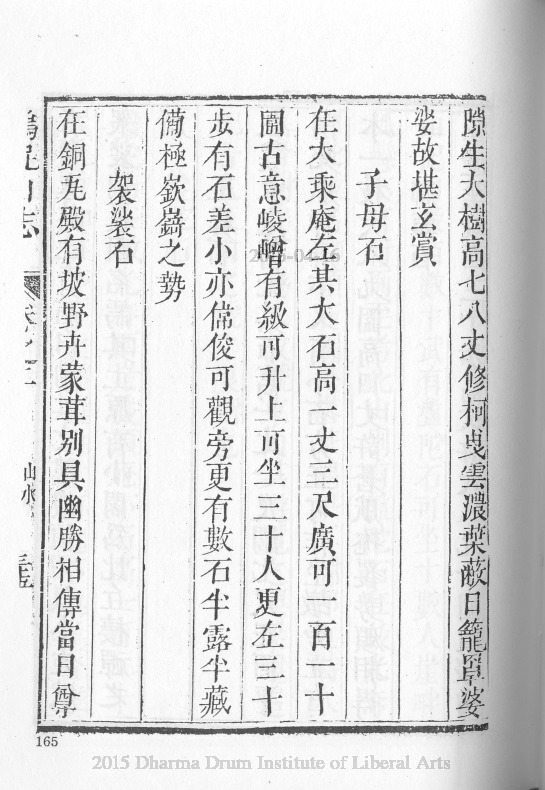 隙生大樹高七八丈修柯曳雲濃葉蔽日籠罩婆
娑故堪玄賞
子母石
在大乘庵左其大石高一丈三尺廣可一百一十
圍古意崚嶒有級可升上可坐三十人更左三十
步有石差小亦儁俊可觀旁更有數石半露半藏
備極嶔𡾊之勢
袈裟石
在銅瓦殿有坡野卉蒙茸別具幽勝相傳當日尊
雞足山志
卷之三
山水
三五
165
2015 Dharma Drum Institute of Liberal Arts